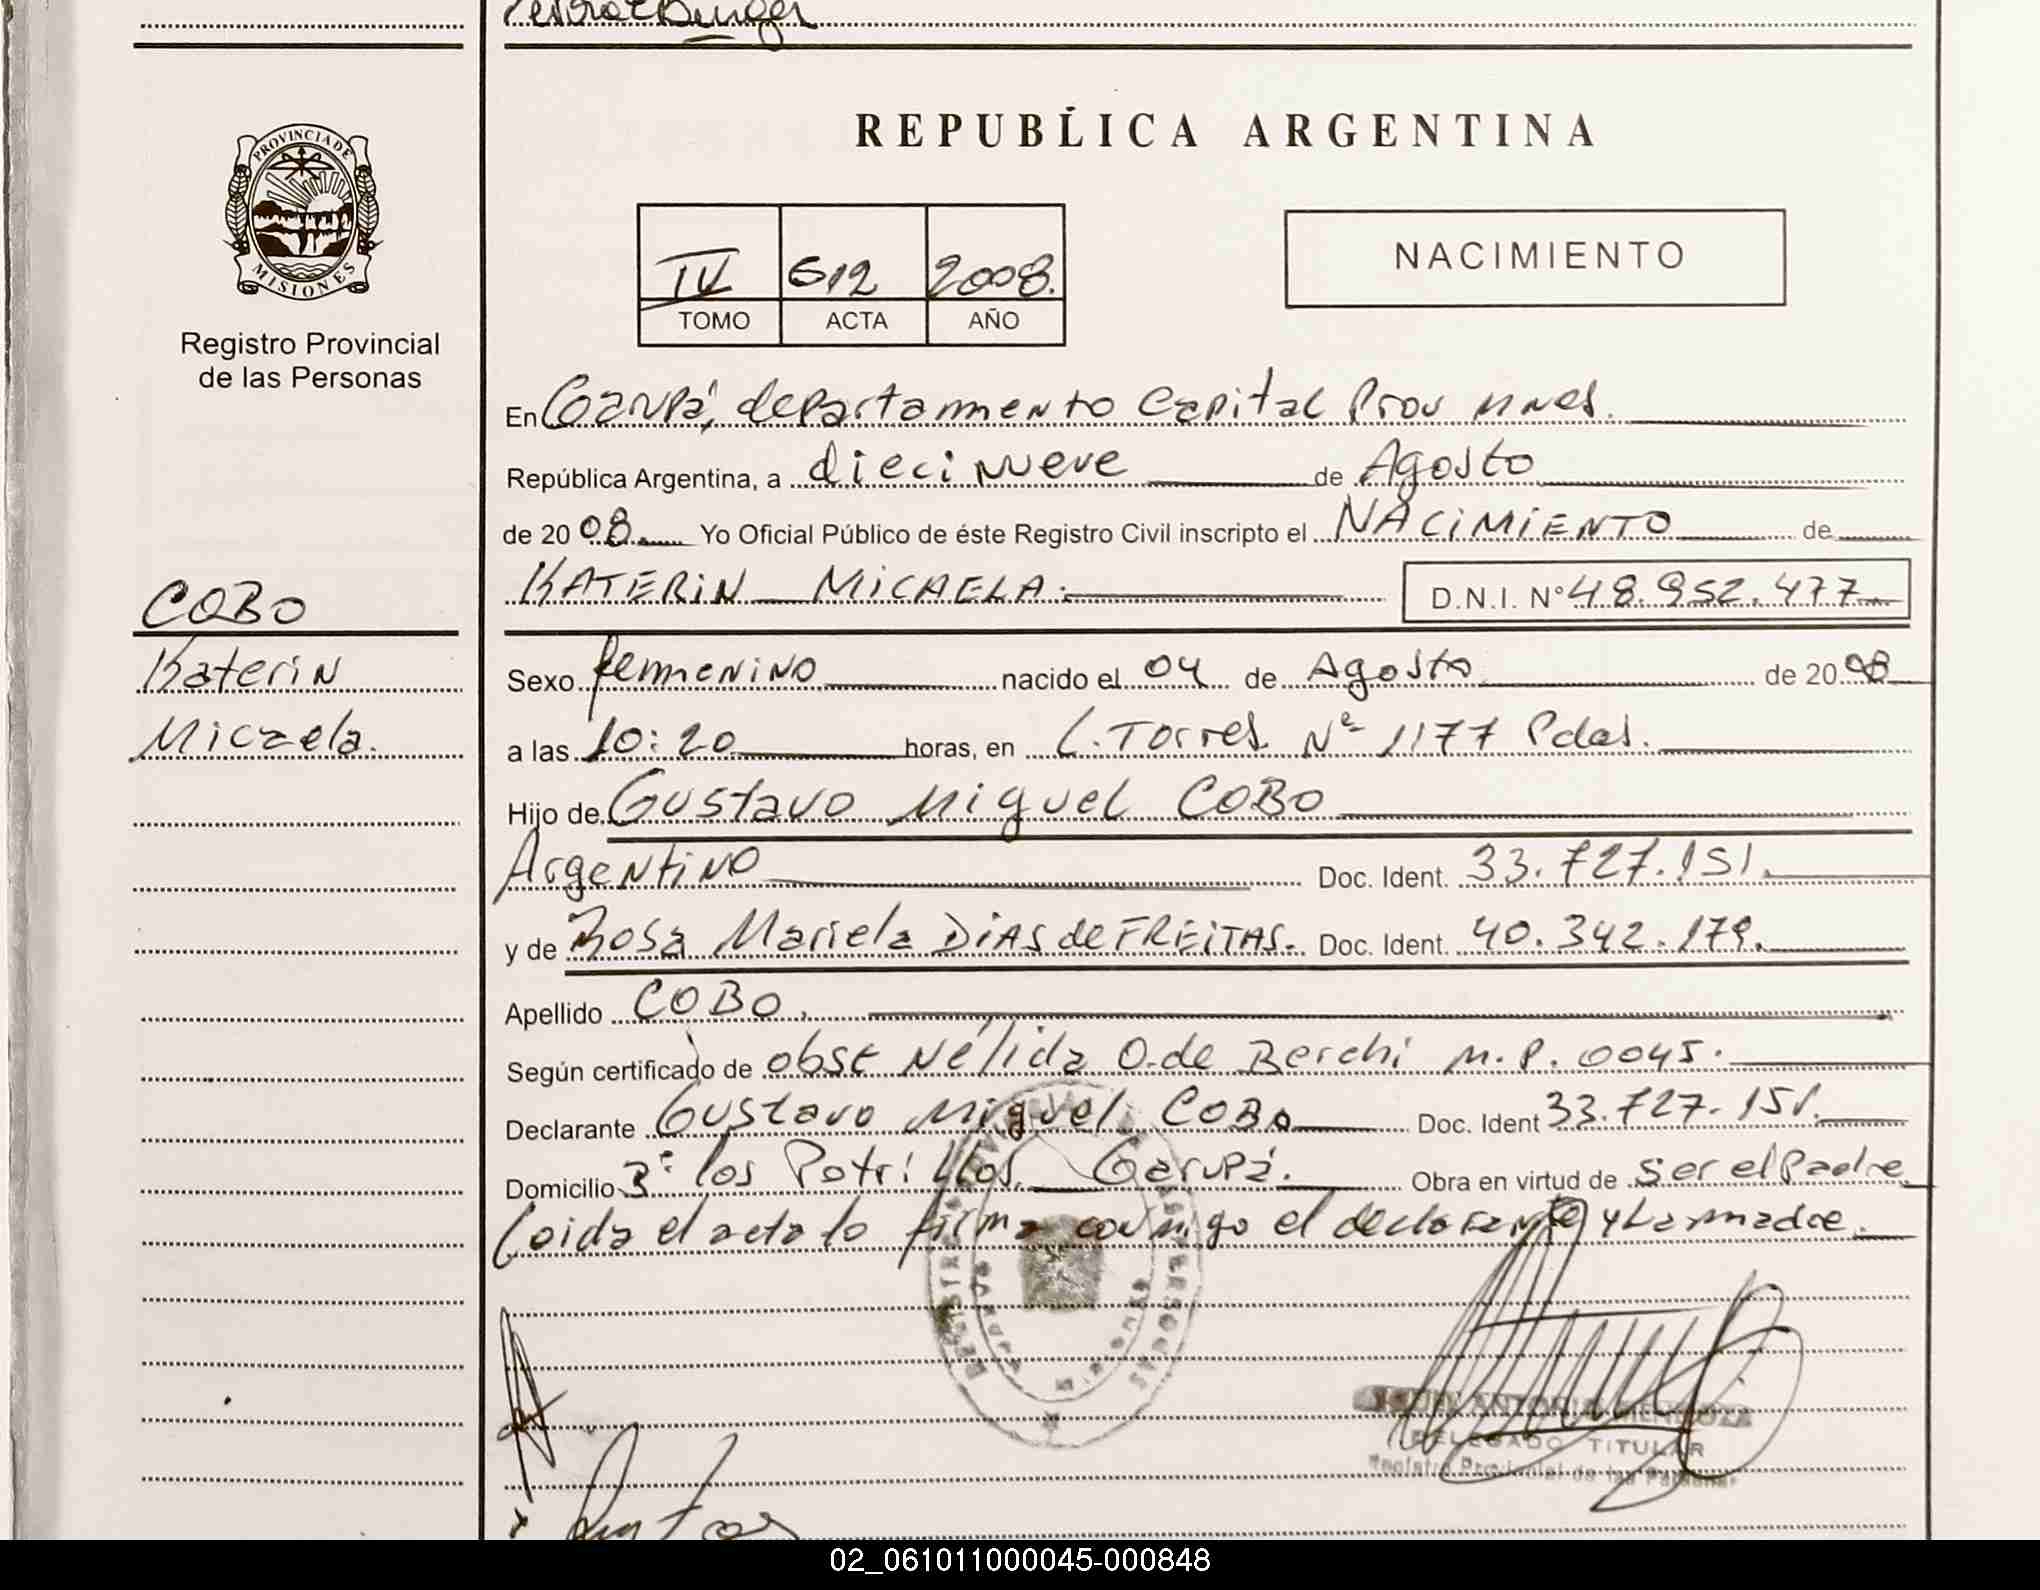 REPUBLICA ARGENTINA
PROVINCIA DE
MISIONES
Registro Provincial
de las Personas
NACIMIENTO
IV 612 2008.
TOMO ACTA AÑO
En Garupá, departamento Capital Prov Mnes.
República Argentina, a diecinueve de Agosto
de 2008. Yo Oficial Público de éste Registro Civil inscripto el NACIMIENTO de
COBO
Katerin
Micaela.
KATERIN MICAELA. D.N.I. N° 48.952.477
Sexo femenino nacido el 04 de Agosto de 2008
a las 10:20 horas, en L. Torres Nº 1177 Pdas.
Hijo de Gustavo Miguel COBO
Argentino Doc. Ident. 33.727.151.
y de Rosa Mariela DIAS de FREITAS. Doc. Ident. 40.342.179.
Apellido COBO.
Según certificado de obst Nélida O. de Berchi M.P. 0045.
Declarante Gustavo Miguel COBO Doc. Ident 33.727.151.
Domicilio Bº los Potrillos Garupá. Obra en virtud de ser el Padre
Loida el acta lo firma conmigo el declarante y La madre.
ANTONIO MENDOZA
DELEGADO TITULAR
Registro Provincial de las Personas
02_061011000045-000848